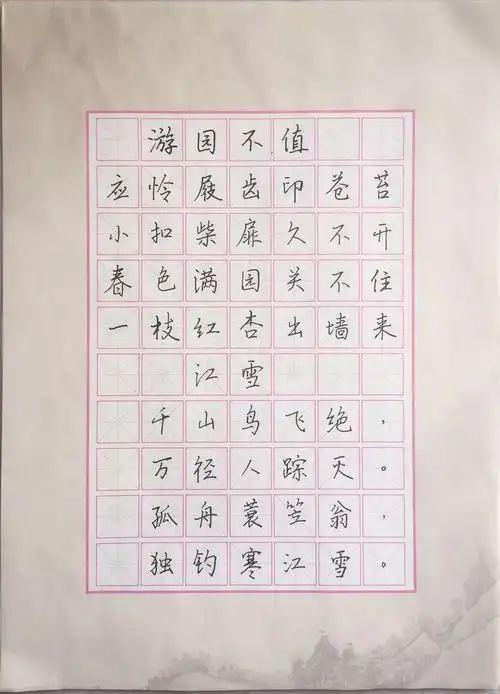 游园不值
应怜屐齿印苍苔
小扣柴扉久不开
春色满园关不住
一枝红杏出墙来
江雪
千山鸟飞绝，
万径人踪灭。
孤舟蓑笠翁，
独钓寒江雪。